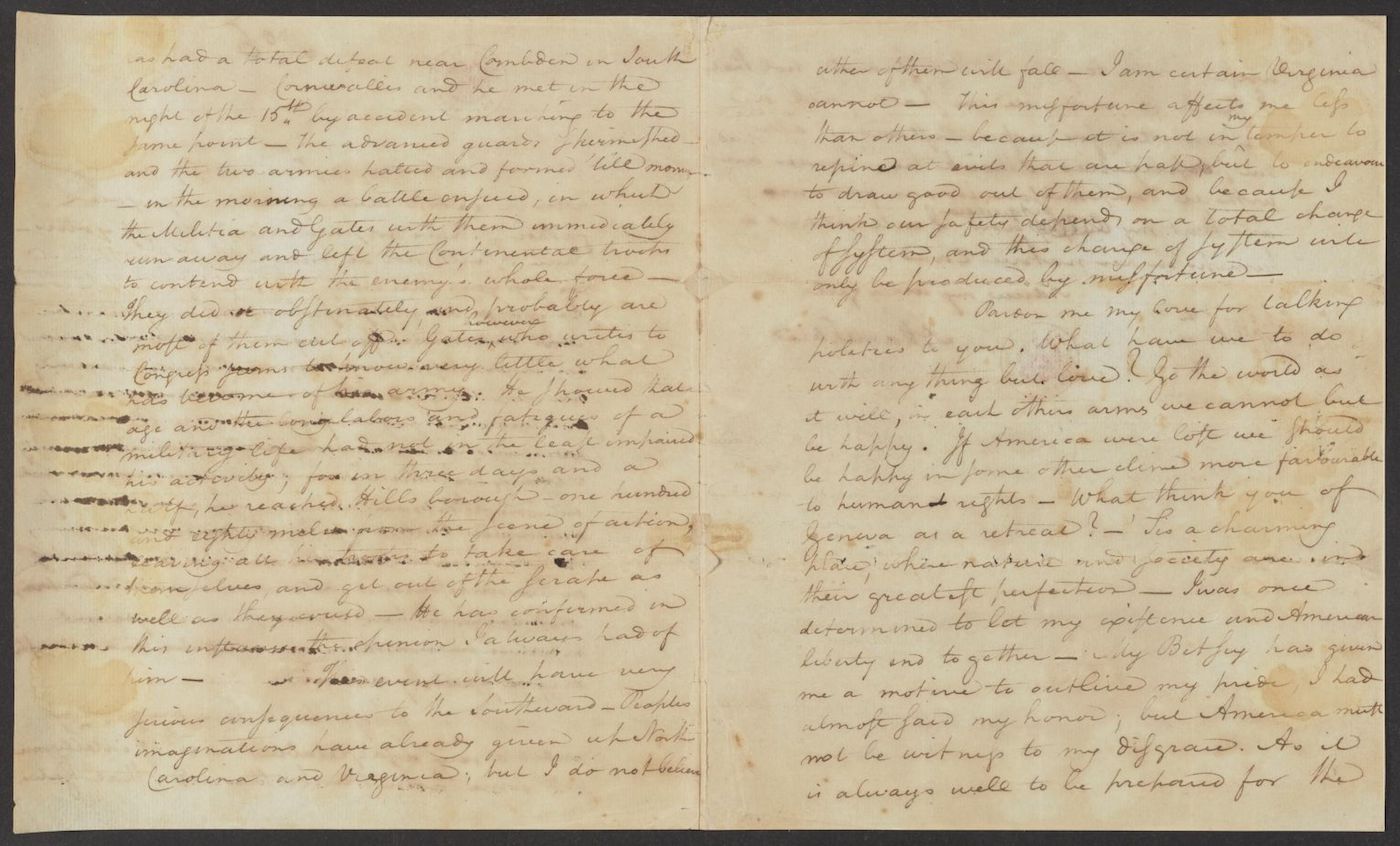 as had a total defeat near Cambden in South
Carolina — Cornwallis and he met in the
night of the 15th by accident marching to the
same point — The advanced guards skirmished —
and the two armies halted and formed till morn
— in the morning a battle ensued, in which
the Militia and Gates with them immediately
run away and left the Continental troops
to contend with the enemy's whole force —
They did it obstinately, and probably are
most of them cut off. Gates, however, who writes to
Congress seems to know very little what
has become of his army. He showed that
age and the long labors and fatigues of a
military life had not in the least impaired
his activity; for in three days and a
half, he reached Hills borough — one hundred
and eighty miles from the scene of action,
leaving all his troops to take care of
themselves, and get out of the scrape as
well as they could — He has confirmed in
this instance the opinion I always had of
him — This event will have very
serious consequences to the Southward — Peoples
imaginations have already given up North
Carolina and Virginia; but I do not believe
either of them will fall — I am certain Virginia
cannot — This misfortune affects me less
than others — because it is not in my temper to
repine at evils that are past, but to endeavour
to draw good out of them, and because I
think our safety depends on a total change
of system, and this change of system will
only be produced by misfortune —
Pardon me my love for talking
politics to you. What have we to do
with any thing but love? Go the world as
it will, in each others arms we cannot but
be happy. If America were lost we should
be happy in some other clime more favourable
to human rights — What think you of
Geneva as a retreat? — 'Tis a charming
place; where nature and society are in
their greatest perfection — I was once
determined to let my existence and American
liberty end together — My Betsey has given
me a motive to outlive my pride, I had
almost said my honor; but America must
not be witness to my disgrace. As it
is always well to be prepared for the